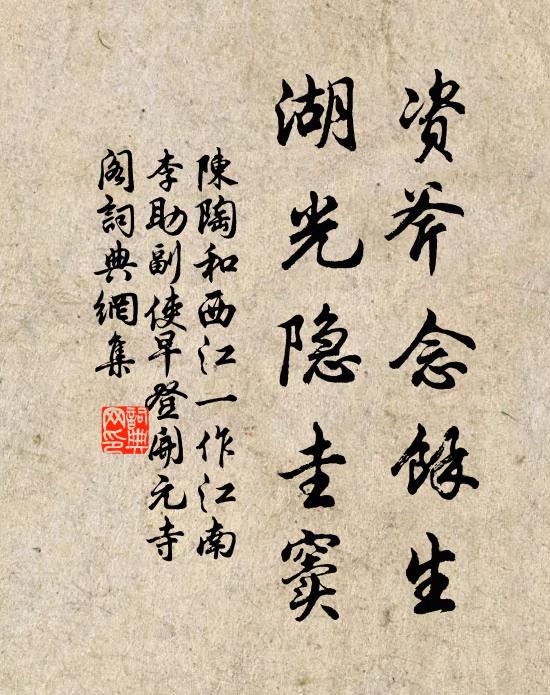 资斧念餘生
湖光隐圭窦
陳陶和西江一作江南
李助副使早登開元寺
阁詞典網集
詞典網印